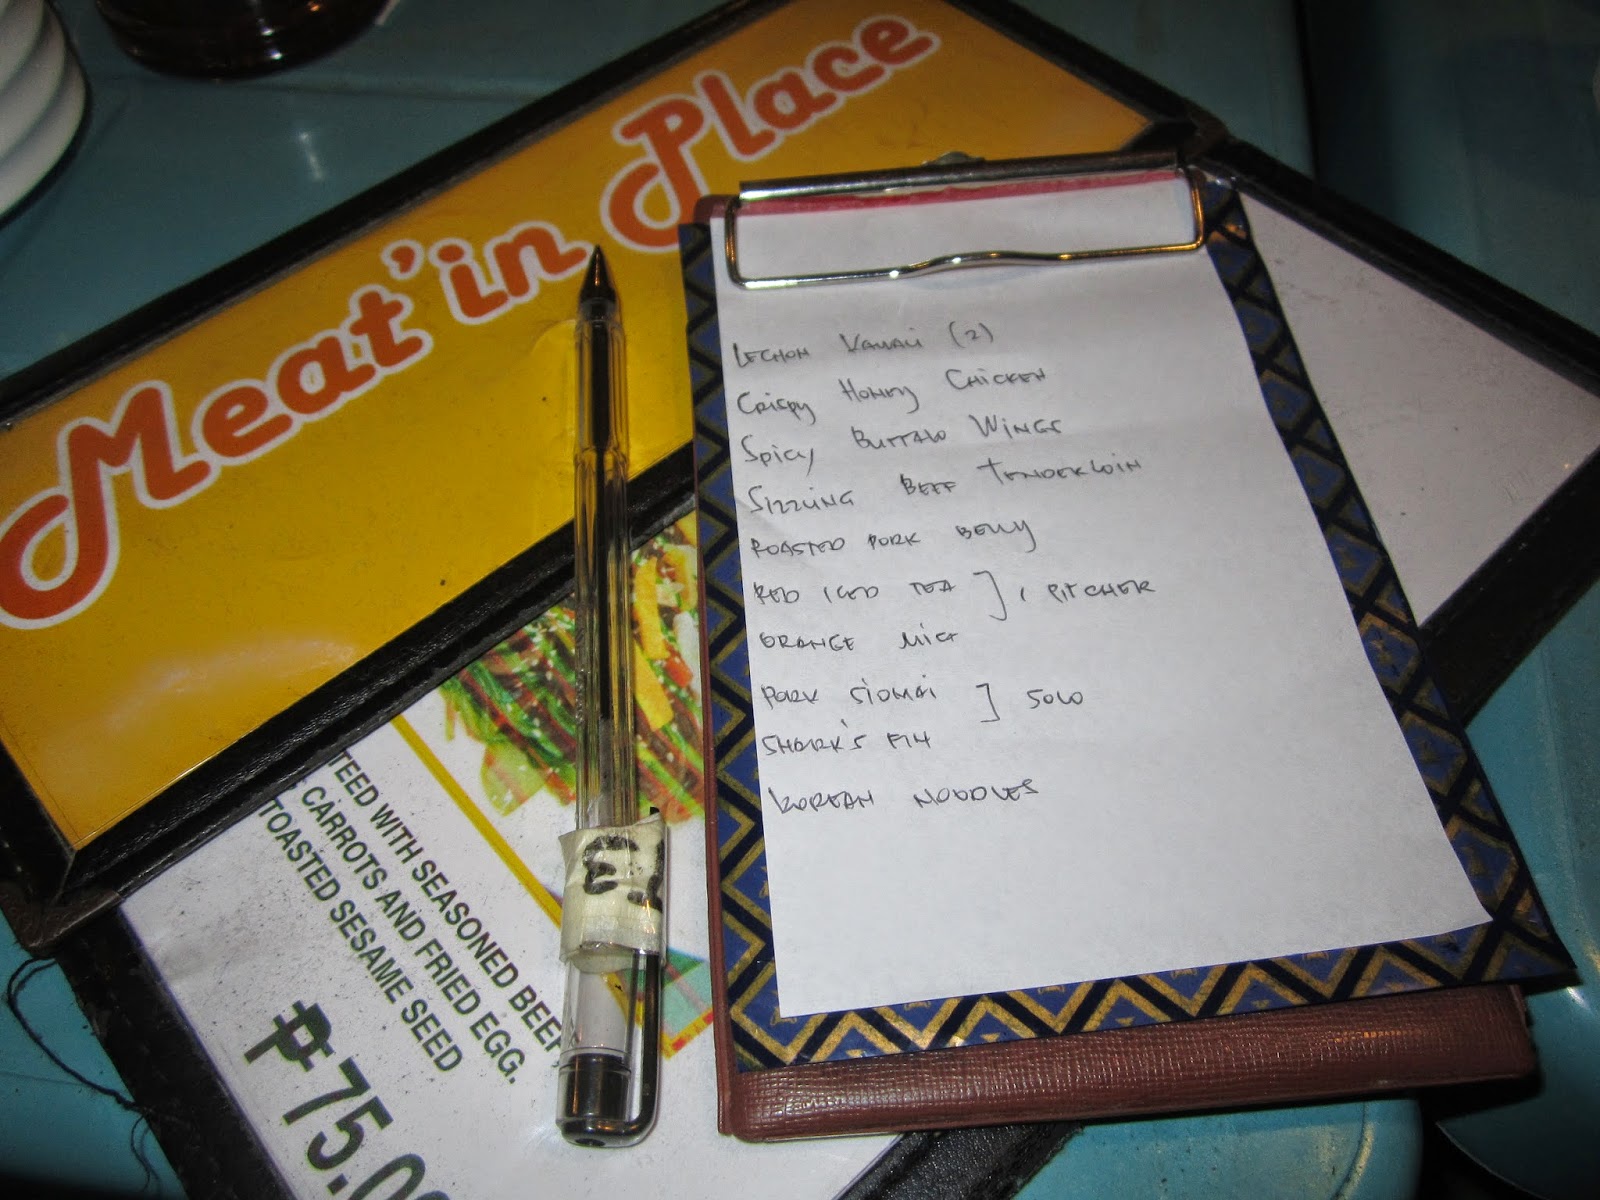 Meat'in Place
LECHON KAWALI (2)
CRISPY HONEY CHICKEN
SPICY BUFFALO WINGS
SIZZLING BEEF TENDERLOIN
ROASTED PORK BELLY
RED ICED TEA ] 1 PITCHER
ORANGE
PORK SIOMAI ] SOLO
SHARK'S FIN
KOREAN NOODLES
TEED WITH SEASONED BEEF,
CARROTS AND FRIED EGG.
TOASTED SESAME SEED
₱75.0